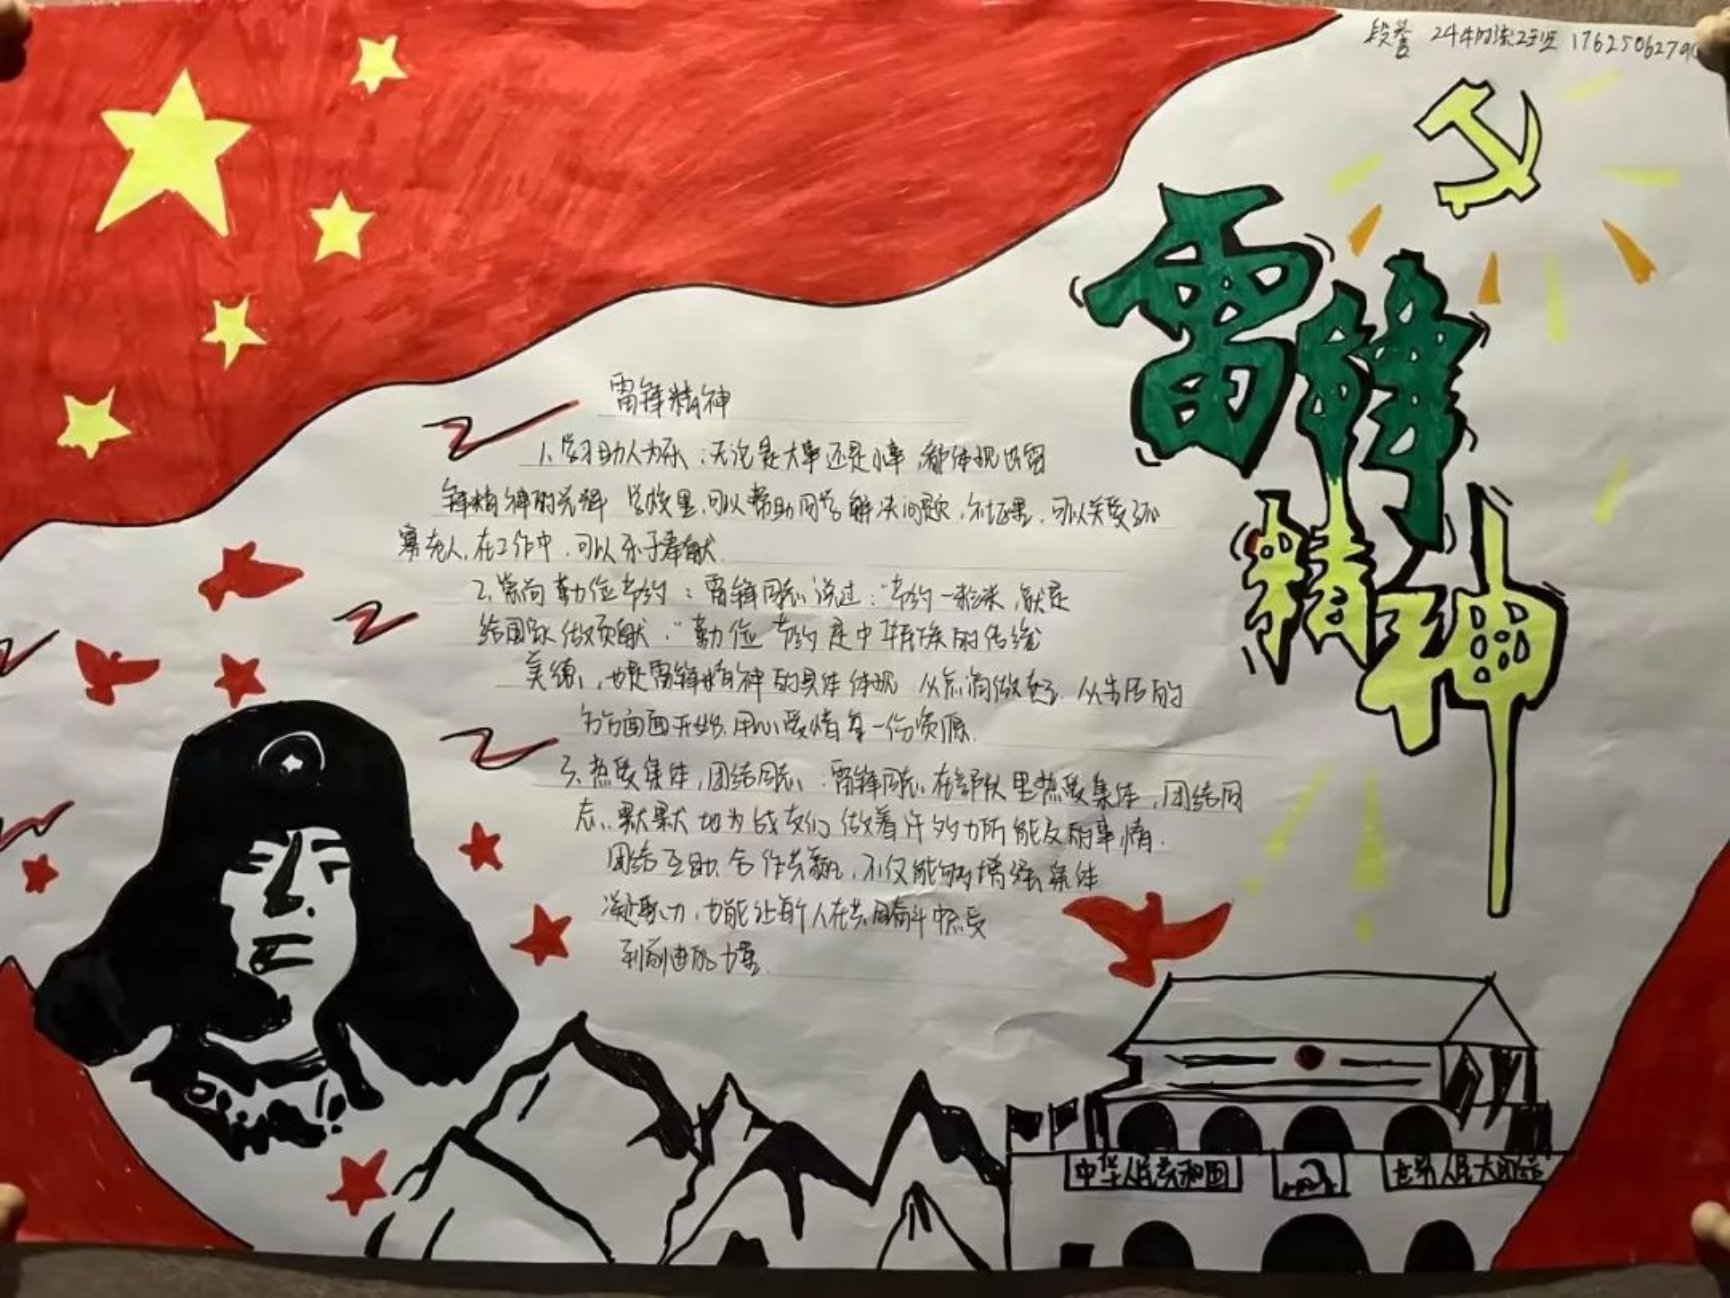 段誉 24 2班 1762506279
雷锋
精神
雷锋精神
1、学习助人为乐：无论是大事还是小事，都体现出雷
锋精神的光辉 学校里，可以帮助同学解决问题，社区里，可以关爱孤
寡老人，在工作中，可以乐于奉献.
2、崇尚勤俭节约：雷锋同志说过：“节约一粒米，就是
给国家做贡献.”勤俭节约是中华民族的传统
美德，也是雷锋精神的具体体现 从点滴做起，从生活的
方方面面开始，用心爱惜每一份资源.
3、热爱集体，团结同志：雷锋同志在部队里热爱集体，团结同
志，默默地为战友们做着许多力所能及的事情.
团结互助、合作共赢，不仅能够增强集体
凝聚力，也能让每个人在共同奋斗中感受
到前进的力量.
中华人民共和国
世界人民大团结